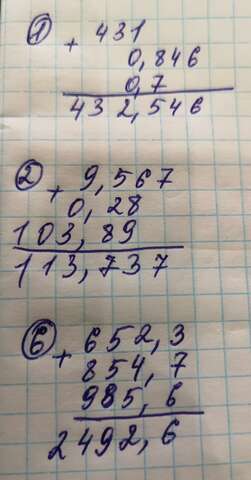 ① + 431
0,846
0,7
432,546
② + 9,567
0,28
103,89
113,737
⑥ + 652,3
854,7
985,6
2492,6